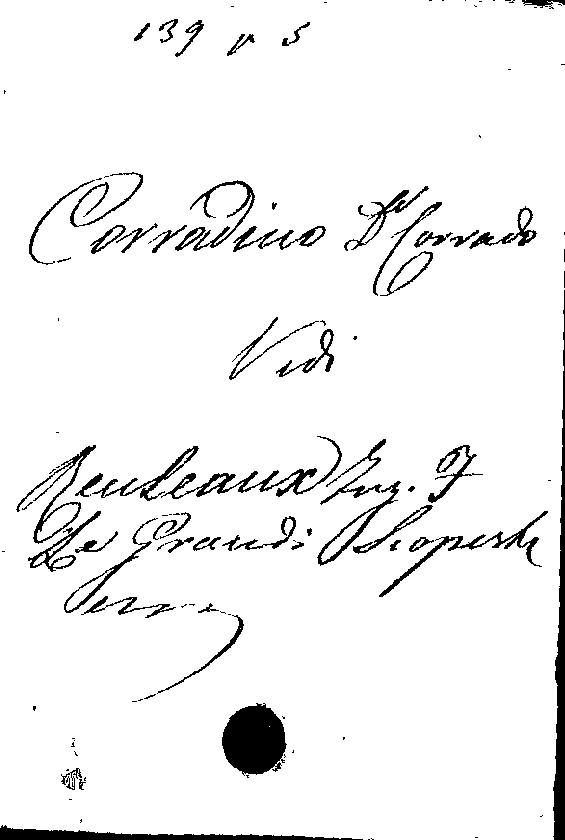 139 v 5
Corradino Dr Corrado
Vidi
Reuleaux Ing. F
Le Grandi Scoperte